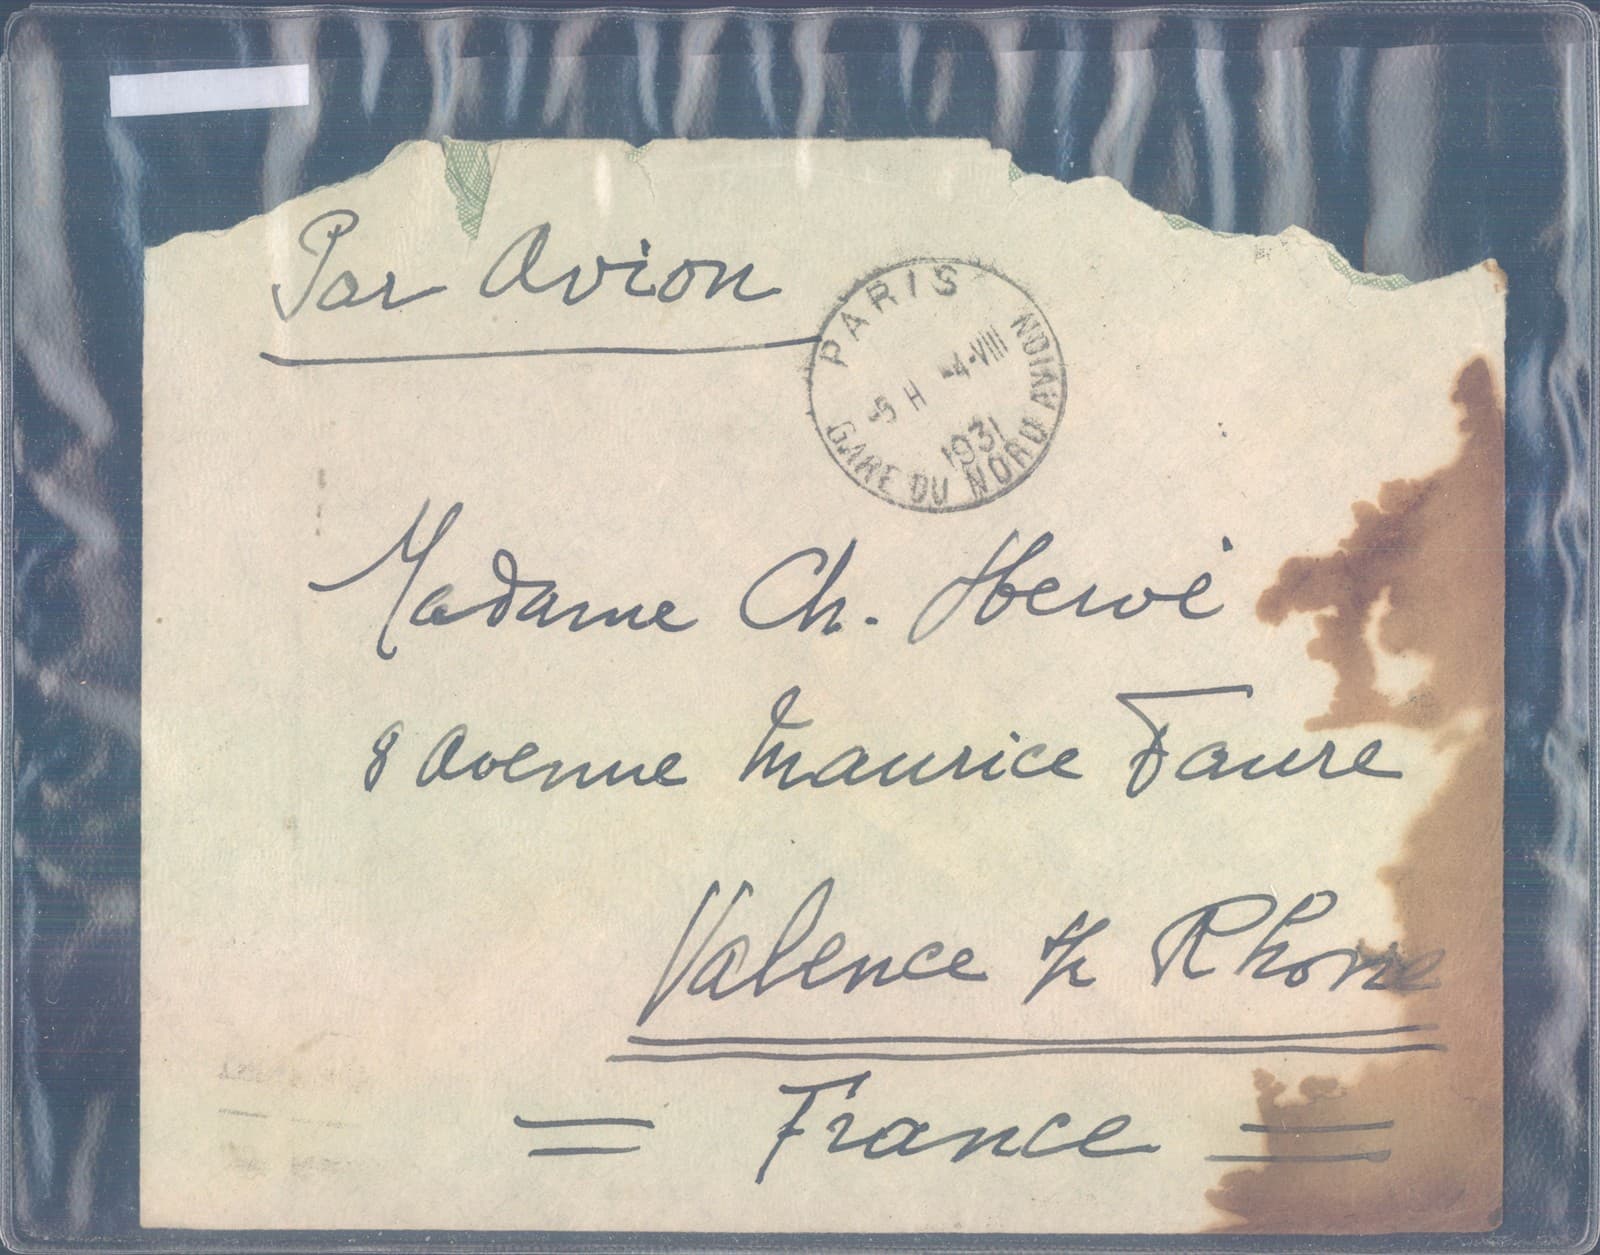 Par Avion
PARIS
GARE DU NORD AVION
-5 H -4-VIII
1931
Madame Ch. Hervé
8 Avenue Maurice Faure
Valence s/ Rhone
= France =